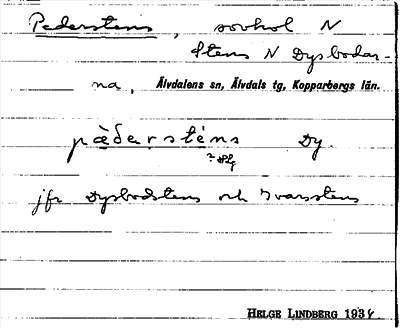 Pederstens, sovhol N
Stens N Dysbodar-
na, Älvdalens sn, Älvdals tg, Kopparbergs län.
pæ̀dərsténs Dy.
jfr Dysbodstens och Ivarsstens
HELGE LINDBERG 1934